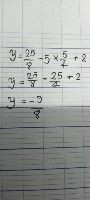 y = 25/8 - 5 × 5/4 + 2
y = 25/8 - 25/4 + 2
y = -9/8